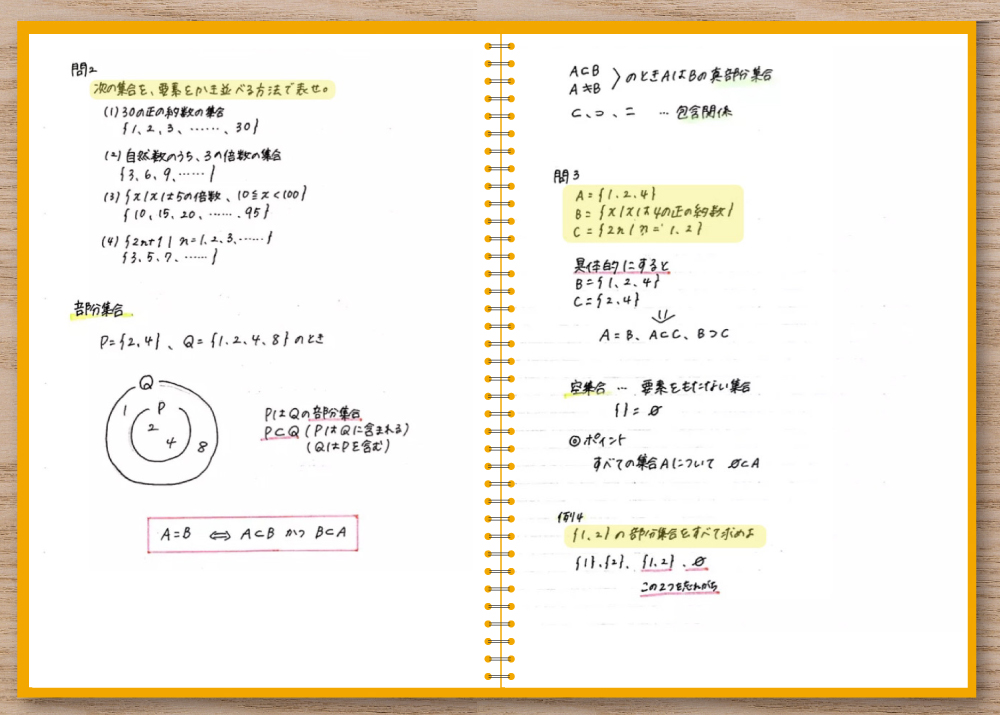 問2
次の集合を、要素をかき並べる方法で表せ。
(1) 30の正の約数の集合
{1、2、3、……、30}
(2) 自然数のうち、3の倍数の集合
{3、6、9、……}
(3) {x|xは5の倍数、10≦x<100}
{10、15、20、……、95}
(4) {2n+1|n=1、2、3、……}
{3、5、7、……}
部分集合
P={2、4}、Q={1、2、4、8}のとき
Q
1
P
2
4
8
PはQの部分集合
P⊂Q (PはQに含まれる)
(QはPを含む)
A=B ⇔ A⊂B かつ B⊂A
A⊂B
A≠B
のときAはBの真部分集合
⊂、⊃、= … 包含関係
問3
A={1、2、4}
B={x|xは4の正の約数}
C={2n|n=1、2}
具体的にすると
B={1、2、4}
C={2、4}
⇓
A=B、A⊂C、B⊃C
空集合 … 要素をもたない集合
{}=∅
◎ポイント
すべての集合Aについて ∅⊂A
例4
{1、2}の部分集合をすべて求めよ
{1}、{2}、{1、2}、∅
この2つを忘れがち